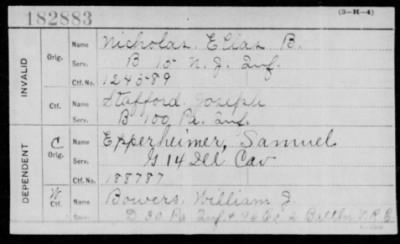 182883
(3-H-4)
INVALID
Orig.
Name Nicholas, Elias B.
Serv. B 15 N.J. Inf.
Ctf. No. 124589
Ctf.
Name Stafford, Joseph
Serv. B 100 Pa. Inf.
DEPENDENT
C Orig.
Name Epperheimer, Samuel
Serv. G 14 Del Cav
Ctf. No. 188787
W Ctf.
Name Bowers, William J.
Serv. D 20 Pa Inf + 76 Co 2 Battn V.R.C.